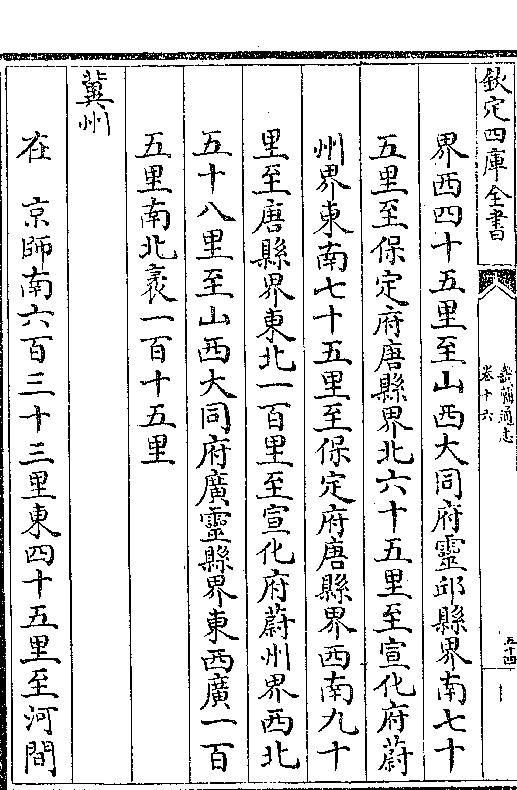 欽定四庫全書
畿輔通志
卷十六
五十四
界西四十五里至山西大同府靈邱縣界南七十
五里至保定府唐縣界北六十五里至宣化府蔚
州界東南七十五里至保定府唐縣界西南九十
里至唐縣界東北一百里至宣化府蔚州界西北
五十八里至山西大同府廣靈縣界東西廣一百
五里南北袤一百十五里
冀州
在 京師南六百三十三里東四十五里至河間